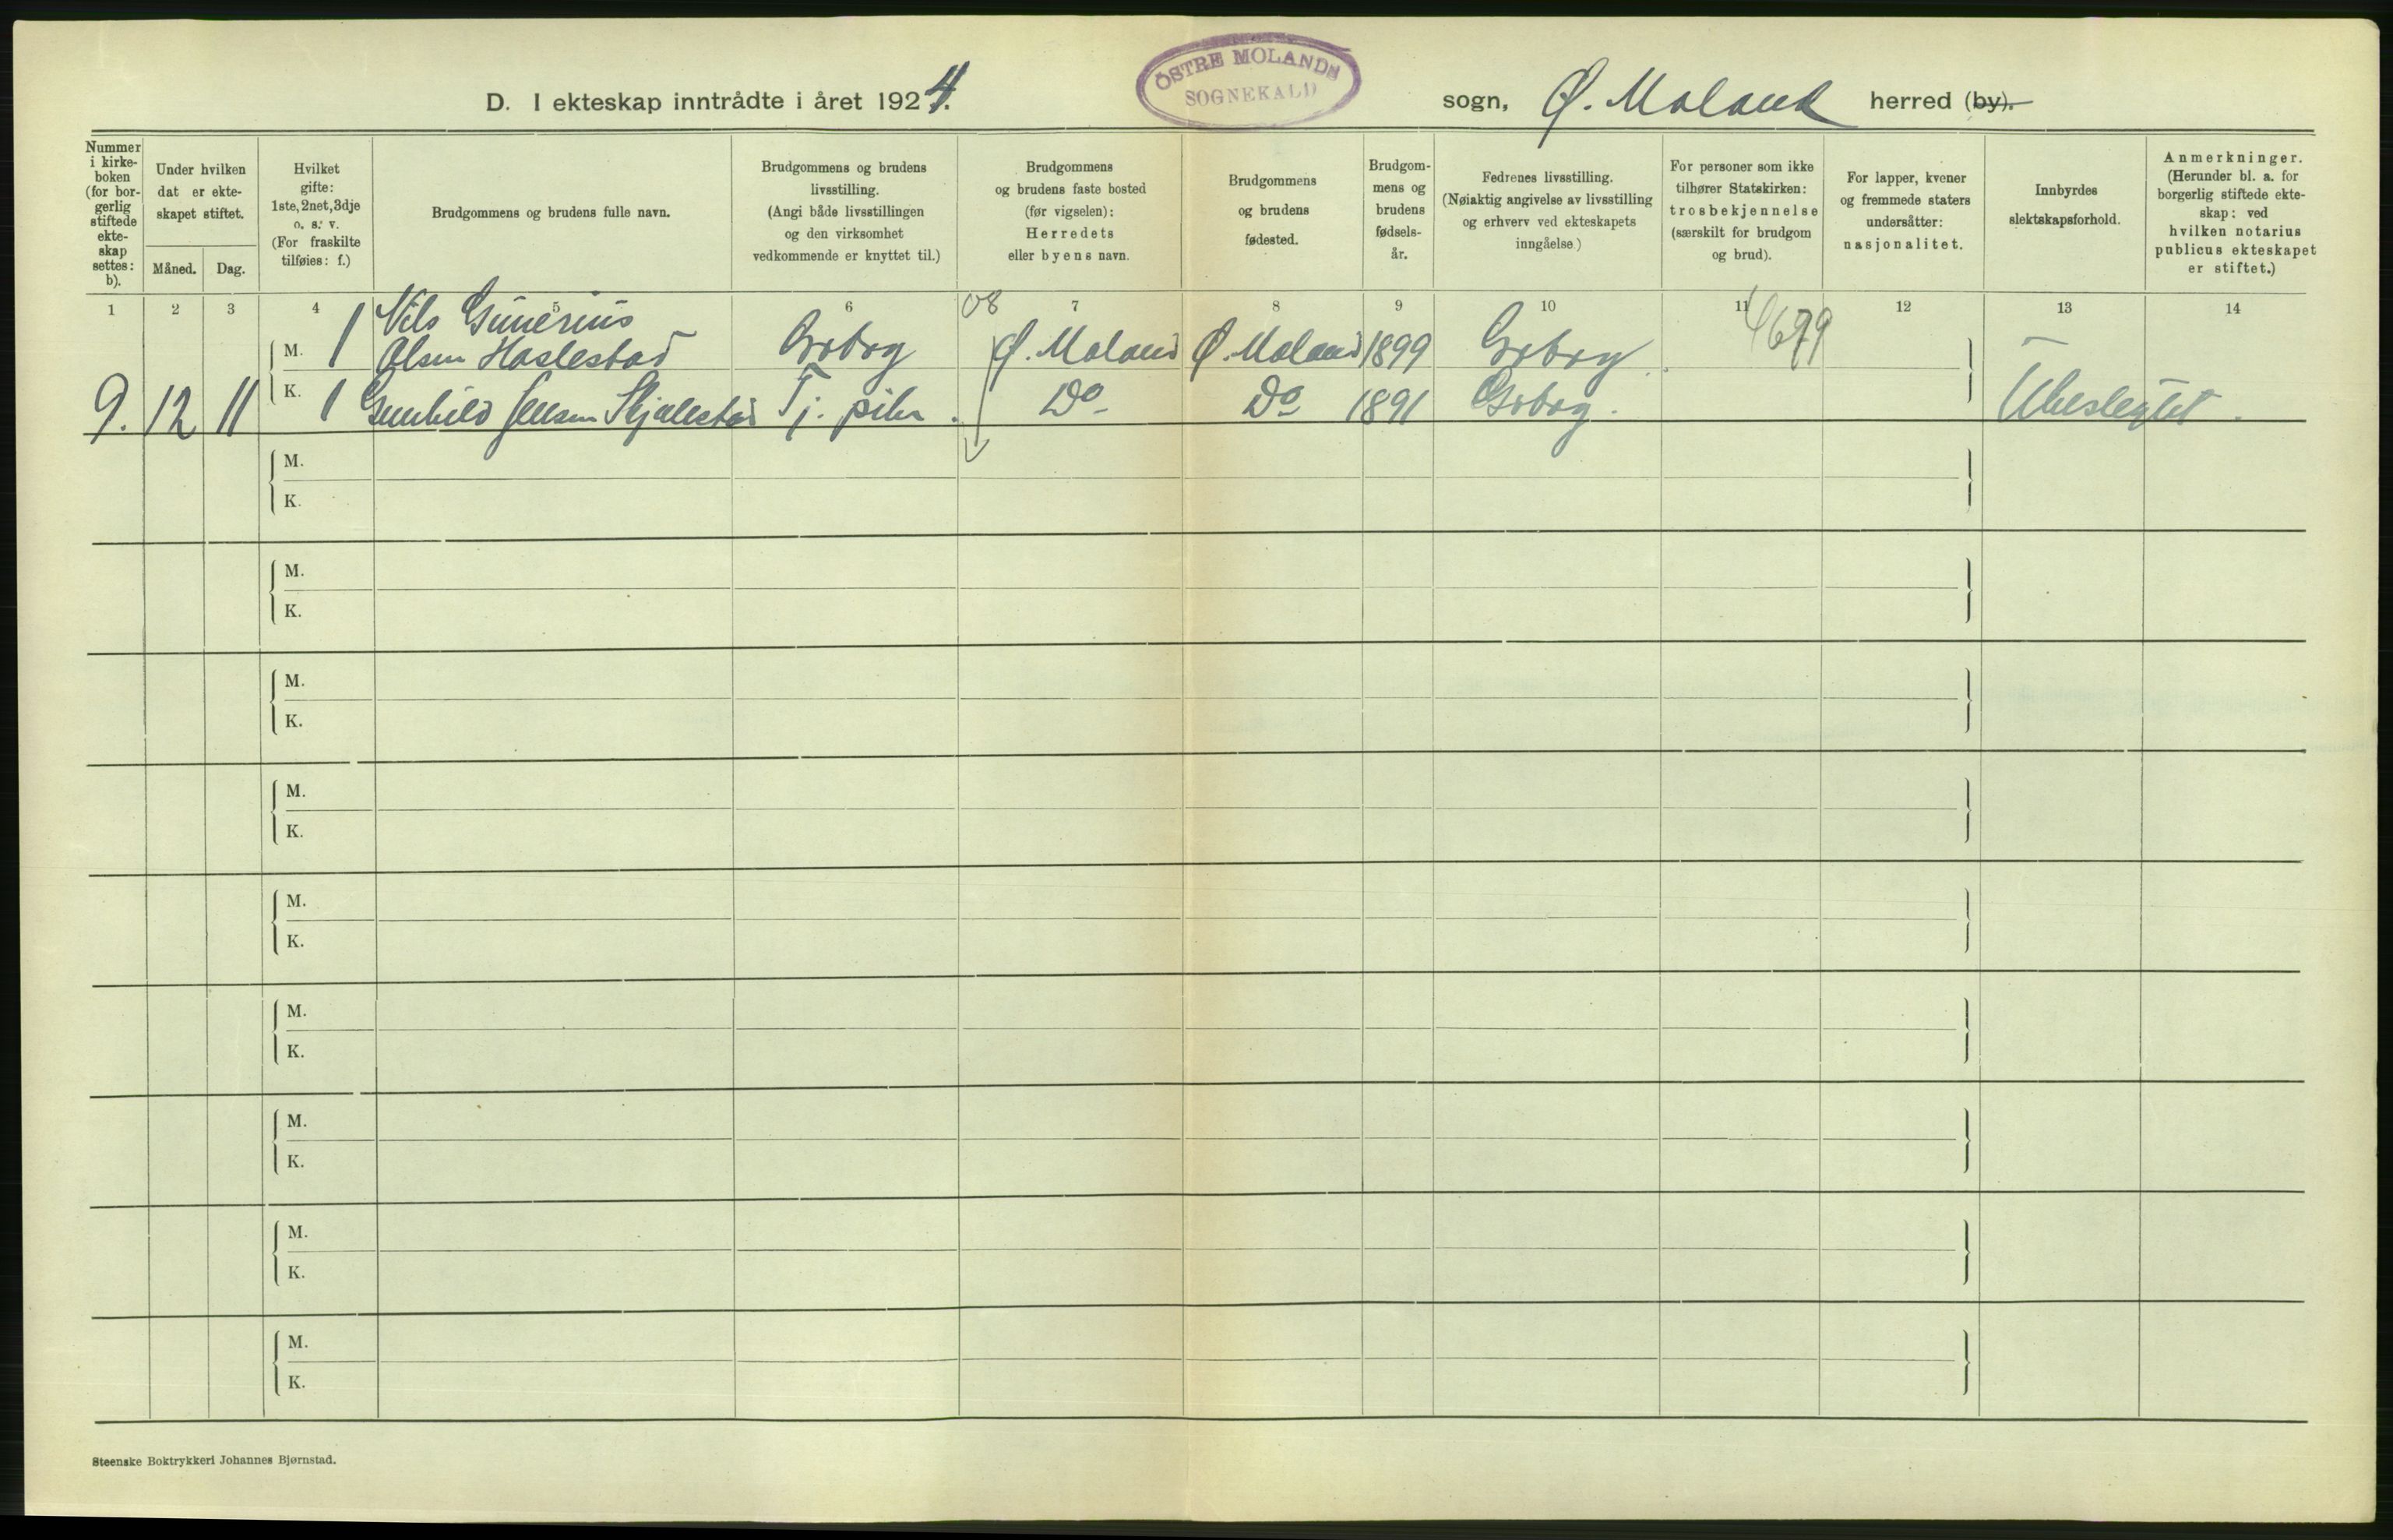 D. I ekteskap inntrådte i året 1924.
ØSTRE MOLANDS
SOGNEKALD
sogn, Ø. Moland herred (by).
Nummer
i kirke-
boken
(for bor-
gerlig
stiftede
ekte-
skap
settes:
b).
Under hvilken
dat er ekte-
skapet stiftet.
Måned. Dag.
Hvilket
gifte:
1ste, 2net, 3dje
o. s. v.
(For fraskilte
tilføies: f.)
Brudgommens og brudens fulle navn.
Brudgommens og brudens
livsstilling.
(Angi både livsstillingen
og den virksomhet
vedkommende er knyttet til.)
Brudgommens
og brudens faste bosted
(før vigselen):
Herredets
eller byens navn.
Brudgommens
og brudens
fødested.
Brudgom-
mens og
brudens
fødsels-
år.
Fedrenes livsstilling.
(Nøiaktig angivelse av livsstilling
og erhverv ved ekteskapets
inngåelse.)
For personer som ikke
tilhører Statskirken:
trosbekjennelse
(særskilt for brudgom
og brud).
For lapper, kvener
og fremmede staters
undersåtter:
nasjonalitet.
Innbyrdes
slektskapsforhold.
Anmerkninger.
(Herunder bl. a. for
borgerlig stiftede ekte-
skap: ved
hvilken notarius
publicus ekteskapet
er stiftet.)
1 2 3 4 5 6 7 8 9 10 11 12 13 14
08
4679
Nils Gunerius
M. 1 Olsen Haslestad Grbrg Ø. Moland Ø. Moland 1899 Grbrg
9. 12 11 K. 1 Gunhild Jensen Skjulestad Tj. pike. Do Do 1891 Grbrg. Ubeslegtet.
M.
K.
M.
K.
M.
K.
M.
K.
M.
K.
M.
K.
M.
K.
M.
K.
M.
K.
Steenske Boktrykkeri Johannes Bjørnstad.